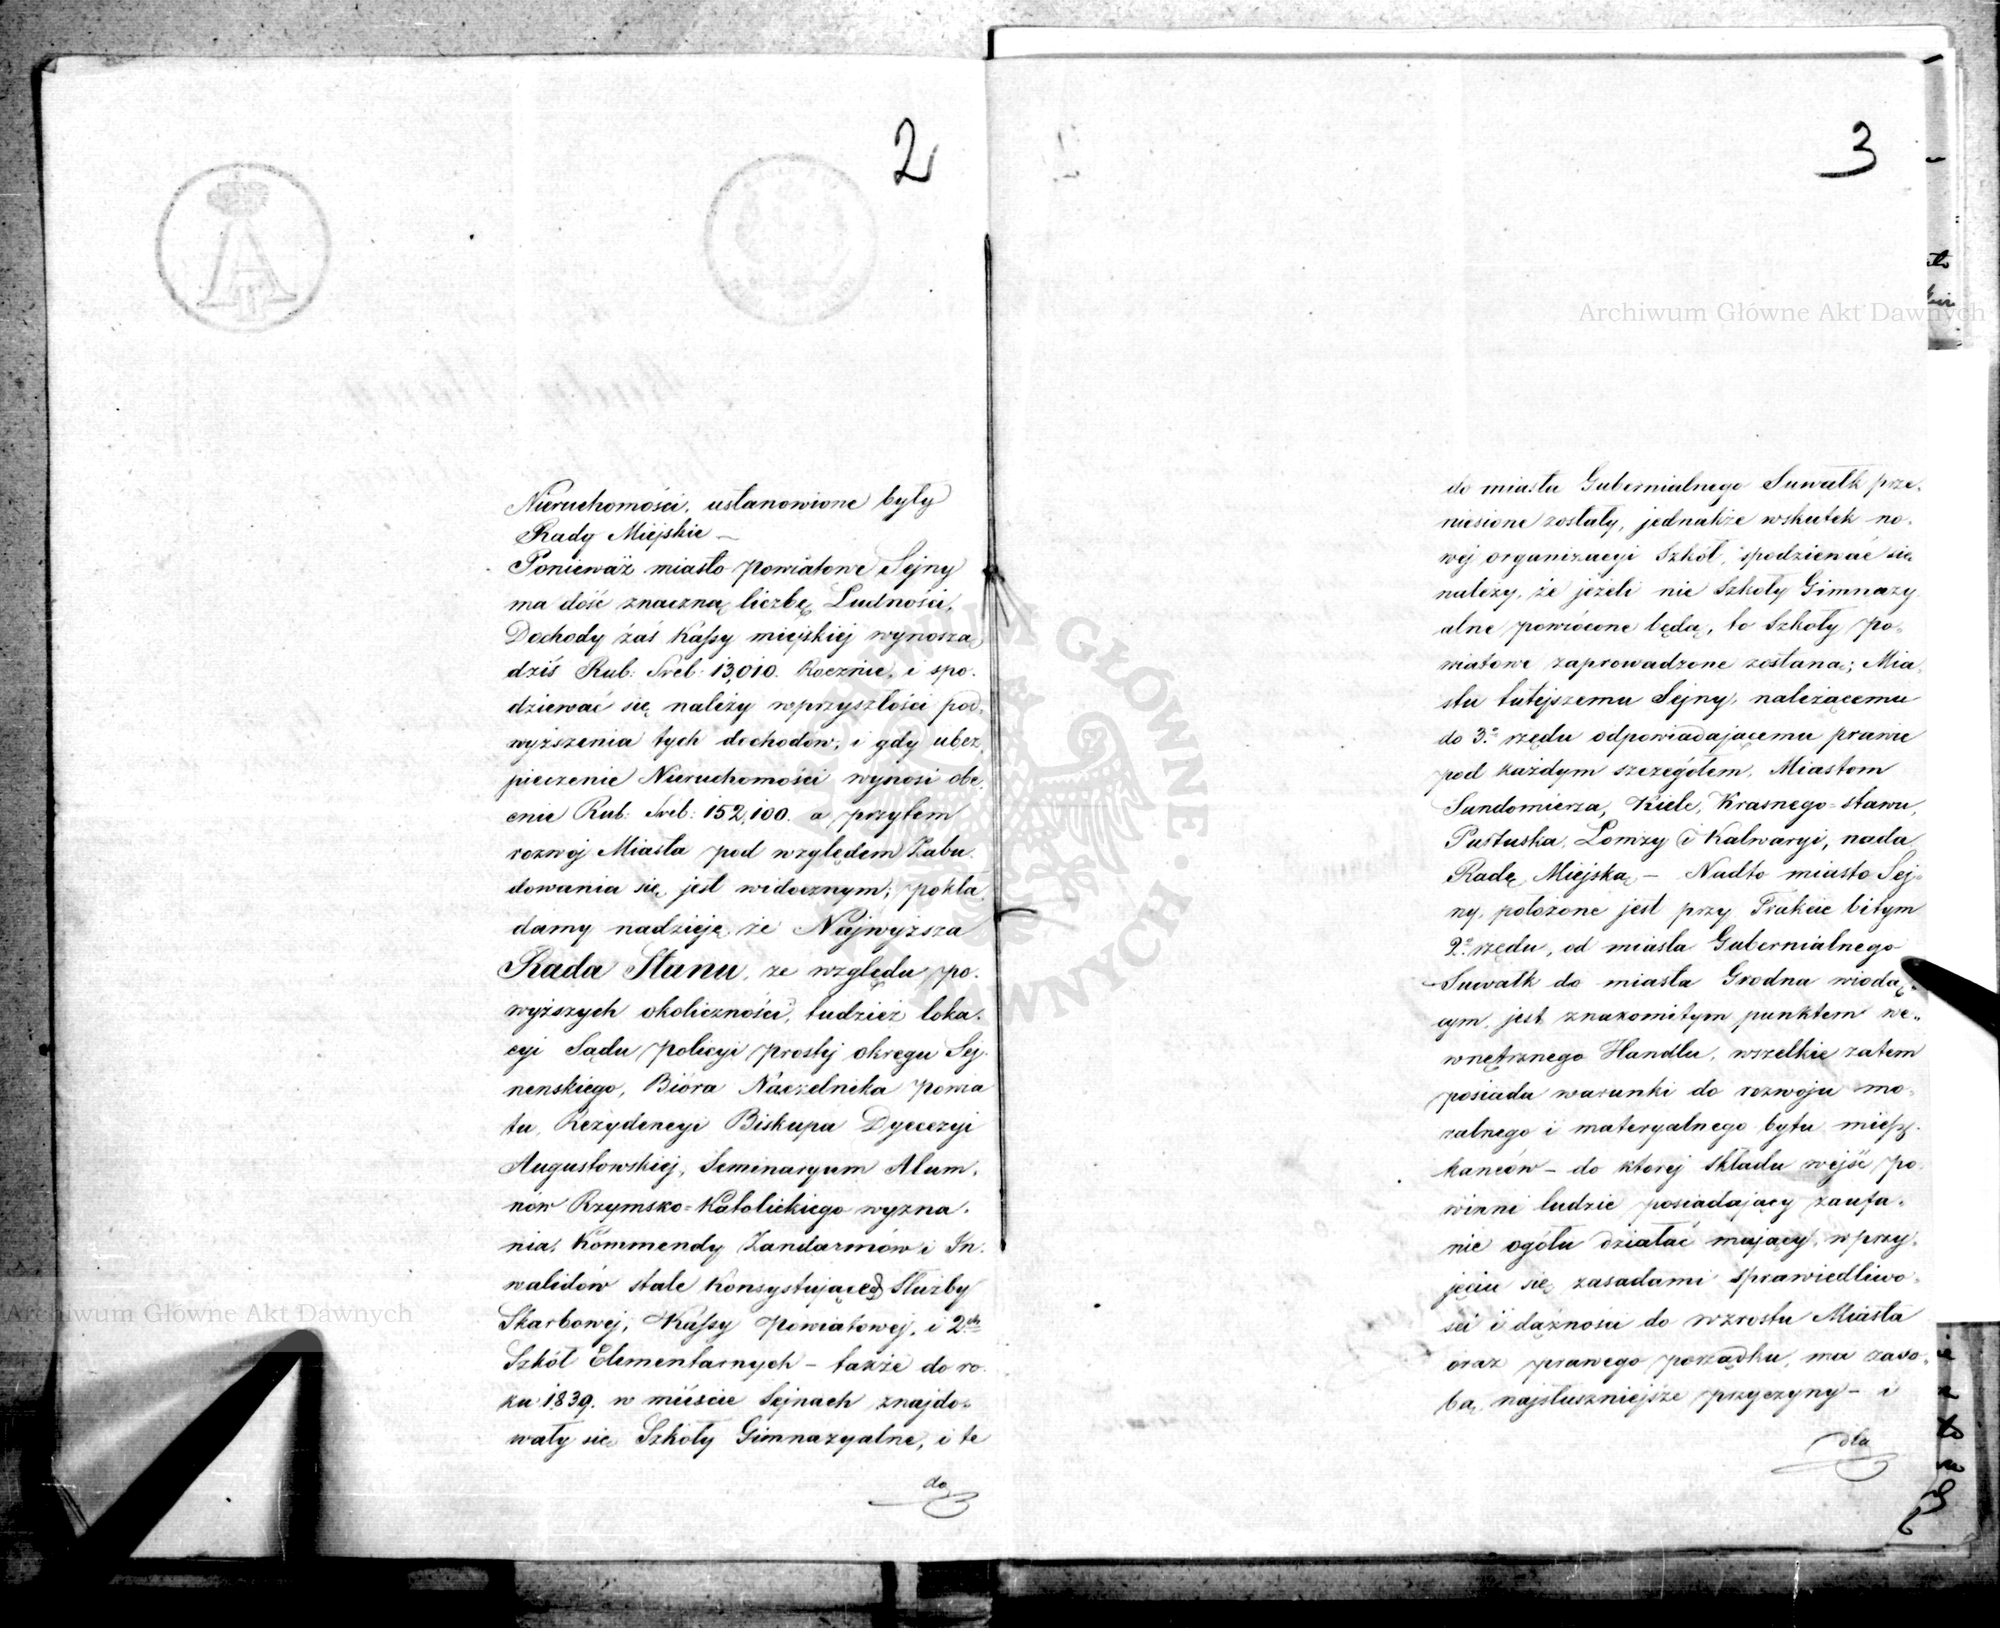 2
Nieruchomości, ustanowione były
Rady Miejskie —
Ponieważ miasto powiatowe Sejny
ma dość znaczną liczbę Ludności,
Dochody zaś Kassy miejskiej wynoszą
dziś Rub: Sreb: 13,010. Rocznie, i spo-
dziewać się należy w przyszłości pod-
wyższenia tych dochodów, i gdy ubez
pieczenie Nieruchomości wynosi obe,
cnie Rub: Sreb: 152,100. a przytem
rozwój Miasta pod względem Zabu-
dowania się jest widocznym; pokła
damy nadzieję że Najwyższa
Rada Stanu, ze względu po-
wyższych okoliczności, tudzież loka-
cyi Sądu policyi prostej okręgu Sej-
nenskiego, Bióra Naczelnika powia
tu, Rezydencyi Biskupa Dyecezyi
Augustowskiej, Seminaryum Alum-
nów Rzymsko=Katolickiego wyzna-
nia, Kommendy Żandarmów i In-
walidów stale Konsystujących Służby
Skarbowej, Kassy Powiatowej, i 2ch
Szkół Elementarnych — także do ro-
ku 1839. w mieście Sejnach znajdo-
wały się Szkoły Gimnazyalne, i te
do
3
do miasta Gubernialnego Suwałk prze-
niesione zostały, jednakże wskutek no-
wej organizacyi Szkół, spodziewać się
należy, że jeżeli nie Szkoły Gimnazy
alne powrócone będą, to Szkoły po-
wiatowe zaprowadzone zostaną; Mia-
stu tutejszemu Sejny, należącemu
do 3.o rzędu odpowiadającemu prawie
pod każdym szczegółem, Miastom
Sandomierza, Kielc, Krasnego=stawu,
Pułtuska, Łomży i Kalwaryi, nada
Radę Miejską — Nadto miasto Sej-
ny, położone jest przy Trakcie bitym
2.o rzędu, od miasta Gubernialnego
Suwałk do miasta Grodna wiodą-
cym, jest znakomitym punktem we-
wnętrznego Handlu, wszelkie zatem
posiada warunki do rozwoju mo-
ralnego i materyalnego bytu miesz-
kańców — do której składu wejść po-
winni ludzie posiadający zaufa-
nie ogółu działać mający, w przy-
jęciu się zasadami sprawiedliwo-
ści i dążności do wzrostu Miasta
oraz prawego porządku, ma za so-
bą, najsłuszniejsze przyczyny — i
dla
Archiwum Główne Akt Dawnych
Archiwum Główne Akt Dawnych
ARCHIWUM GŁÓWNE · AKT DAWNYCH ·